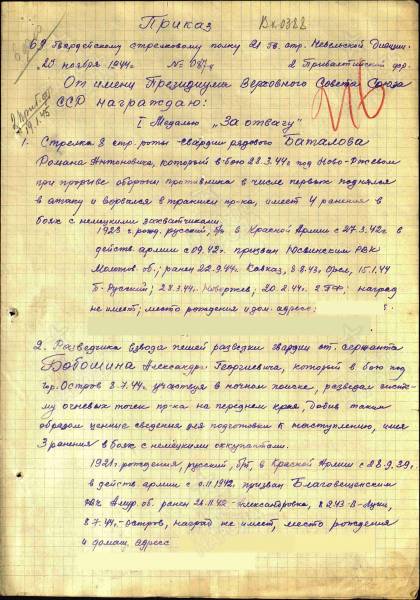 Приказ
Вх 0322
69 Гвардейскому стрелковому полку 21 Гв. стр. Невельской Дивизии.
25 ноября 1944 г. № 087/н 2 Прибалтийский фр.
От имени Президиума Верховного Совета Союза
ССР награждаю:
I Медалью „За отвагу"
1. Стрелка 8 стр. роты - гвардии рядового Баталова
Романа Антоновича, который в бою 28.3.44 г под Ново-Ржевом
при прорыве обороны противника в числе первых поднялся
в атаку и ворвался в траншеи пр-ка, имеет 4 ранения в
боях с немецкими захватчиками.
1923 г. рожд, русский, б/п в Красной Армии с 27.3.42 г. в
действ. армии с 09.42 г. призван Юсвинским РВК
Молотов. об.; ранен 22.9.42 г. Кавказ, 8.8.43 г. Орел, 15.1.44
28.3.44 г. Новоржев; 20.2.44 г. 2 ПФ; наград
не имеет; место рождения и дом. адрес:
2. Разведчика взвода пешей разведки гвардии ст. сержанта
Бабошина Александра Георгиевича, который в бою под
гор. Остров 8.7.44 г участвуя в ночном поиске, разведал систе-
му огневых точек пр-ка на переднем крае, добыв таким
образом ценные сведения для подготовки к наступлению, имея
3 ранения в боях с немецкими оккупантами.
1921 г. рождения, русский, б/п, в Красной Армии с 28.9.39,
в действ. армии с 11.1942, призван Благовещенским
РВК Амур. об. ранен 26.11.42 - Александровка, 8.2.43 - В-Луки,
8.7.44 г. - Остров, наград не имеет, место рождения
и домаш. адрес